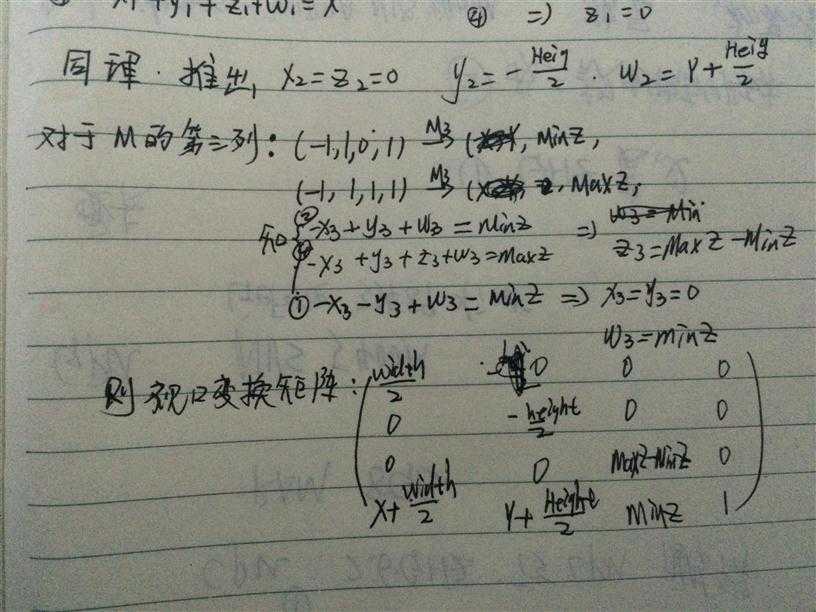 x₁+y₁+z₁+w₁=X ④ => z₁=0
同理.推出, x₂=z₂=0 y₂=-Heig/2 . w₂=Y+Heig/2
对于M的第三列:(-1,1,0,1) M₃→ ( , MinZ,
(-1,1,1,1) M₃→ ( , MaxZ,
知 ② -x₃+y₃+w₃=minZ =>
④ -x₃+y₃+z₃+w₃=maxZ z₃=MaxZ-MinZ
① -x₃-y₃+w₃=minZ => x₃=y₃=0
w₃=minZ
则视口变换矩阵: width/2 0 0 0
0 -height/2 0 0
0 0 MaxZ-MinZ 0
X+width/2 Y+Height/2 MinZ 1